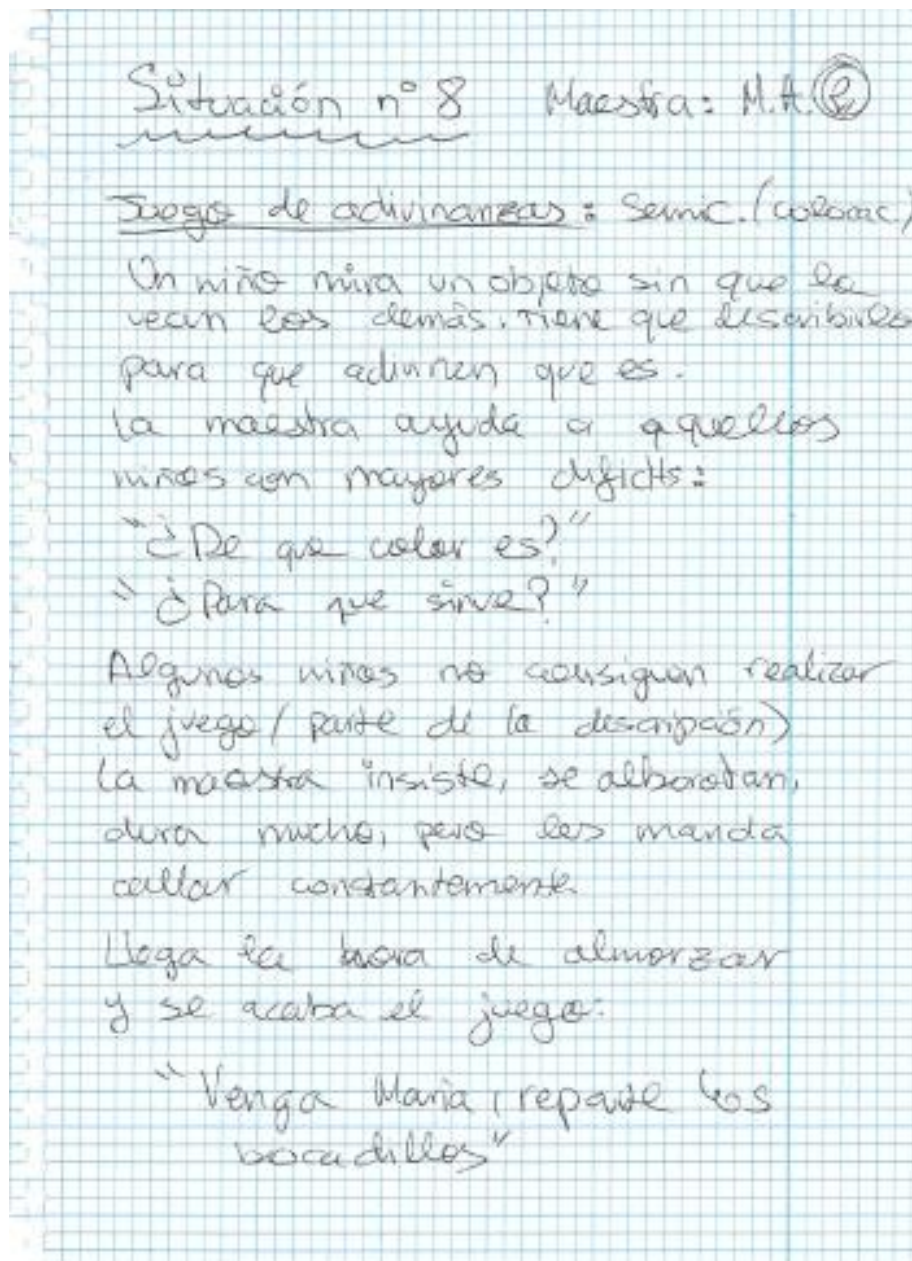 Situación nº 8 Maestra: M.A.
Juego de adivinanzas: Semic. (colocac)
Un niño mira un objeto sin que lo
vean los demás. Tiene que describirlo
para que adivinen que es.
La maestra ayuda a aquellos
niños con mayores dificits:
"¿De que color es?"
"¿Para que sirve?"
Algunos niños no consiguen realizar
el juego (parte de la descripción)
La maestra insiste, se alborotan,
dura mucho, pero les manda
callar constantemente
Llega la hora de almorzar
y se acaba el juego:
"Venga Maria, reparte los
bocadillos"